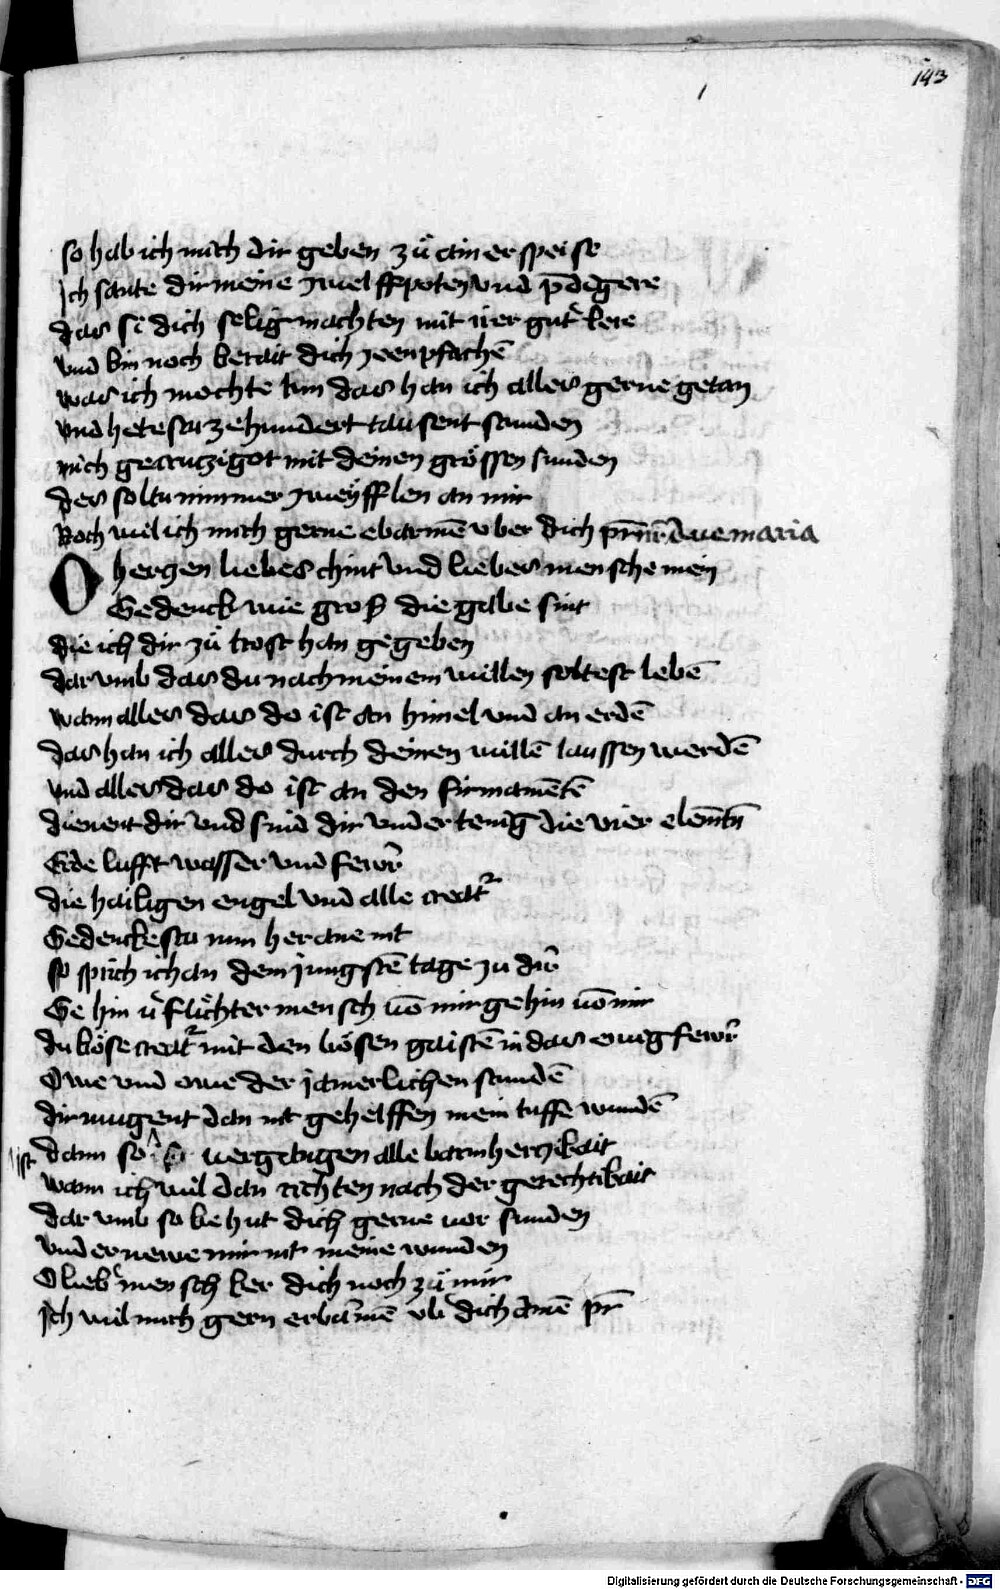 143
so hab ich mich dir geben zů ainer speise
Ich sante dir meine zwelffpoten vnd p̄digere
das si dich selig machten mit irer gutͤ lere
vnd bin noch berait dich zeenpfachē
was ich mochte tun das han ich alles gerne getan
vnd hetestu zehundert tausent stunden
mich gecruczigot mit deinen grössen sunden
des soltu nimmer zweÿfflen an mir
Noch wil ich mich gerne ebarmē vber dich pr̄nr̄ Aue maria
O herczen liebes chint vnd liebes mensche mein
Gedenck wie gros die gabe sint
die ich dir zů trost han gegeben
dar vmb das du nach meinem willen soltest lebē
wann alles das do ist an himel vnd an erdē
das han ich alles durch deinen willē laussen werdē
vnd alles das do ist an den firmamētē
dienent dir vnd sind dir vndertenig die vier elemētn̄
Erde lufft wasser vnd fewr̄
die hailigen engel vnd alle creatr
Gedenckestu nun her ane nit
so sprich ich an dem jungstē tage zu dir
Ge hin v̊flůchter mensch uō mir ge hin uō mir
du böse creatr mit den bösen gaistē in das ewig fewr̄
Owe vnd owe der jamerlichen stundē
dir mugent dan nit gehelffen mein tuffe wundē
dann so ist uergangen alle barmherczikait
wann ich wil dan richten nach der gerechtikait
dar vmb so behut dich gerne uor sunden
vnd ernewe mir nit meine wunden
O liebͤ mensch ker dich noch zů mir
Ich wil mich gern erbamē vb dich Amē pr̄
Digitalisierung gefördert durch die Deutsche Forschungsgemeinschaft - DFG